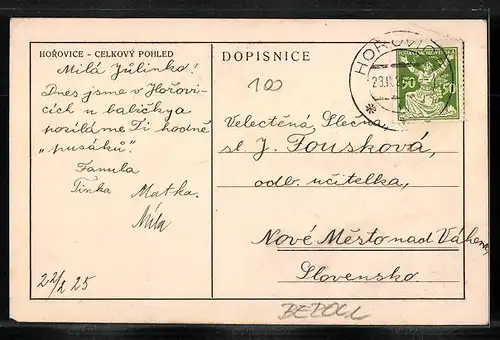 HOŘOVICE - CELKOVÝ POHLED
DOPISNICE
HOŘOVICE
23.II.
50 50
100
Milá Jůlinko!
Dnes jsme v Hořovi-
cích u babičky a
posíláme Ti hodně
„pusáků".
Fanula
Tinka Matka.
Míla
22/2 25
Velectěná Slečna,
sl. J. Fousková,
odb. učitelka,
Nové Město nad Váhem,
Slovensko.